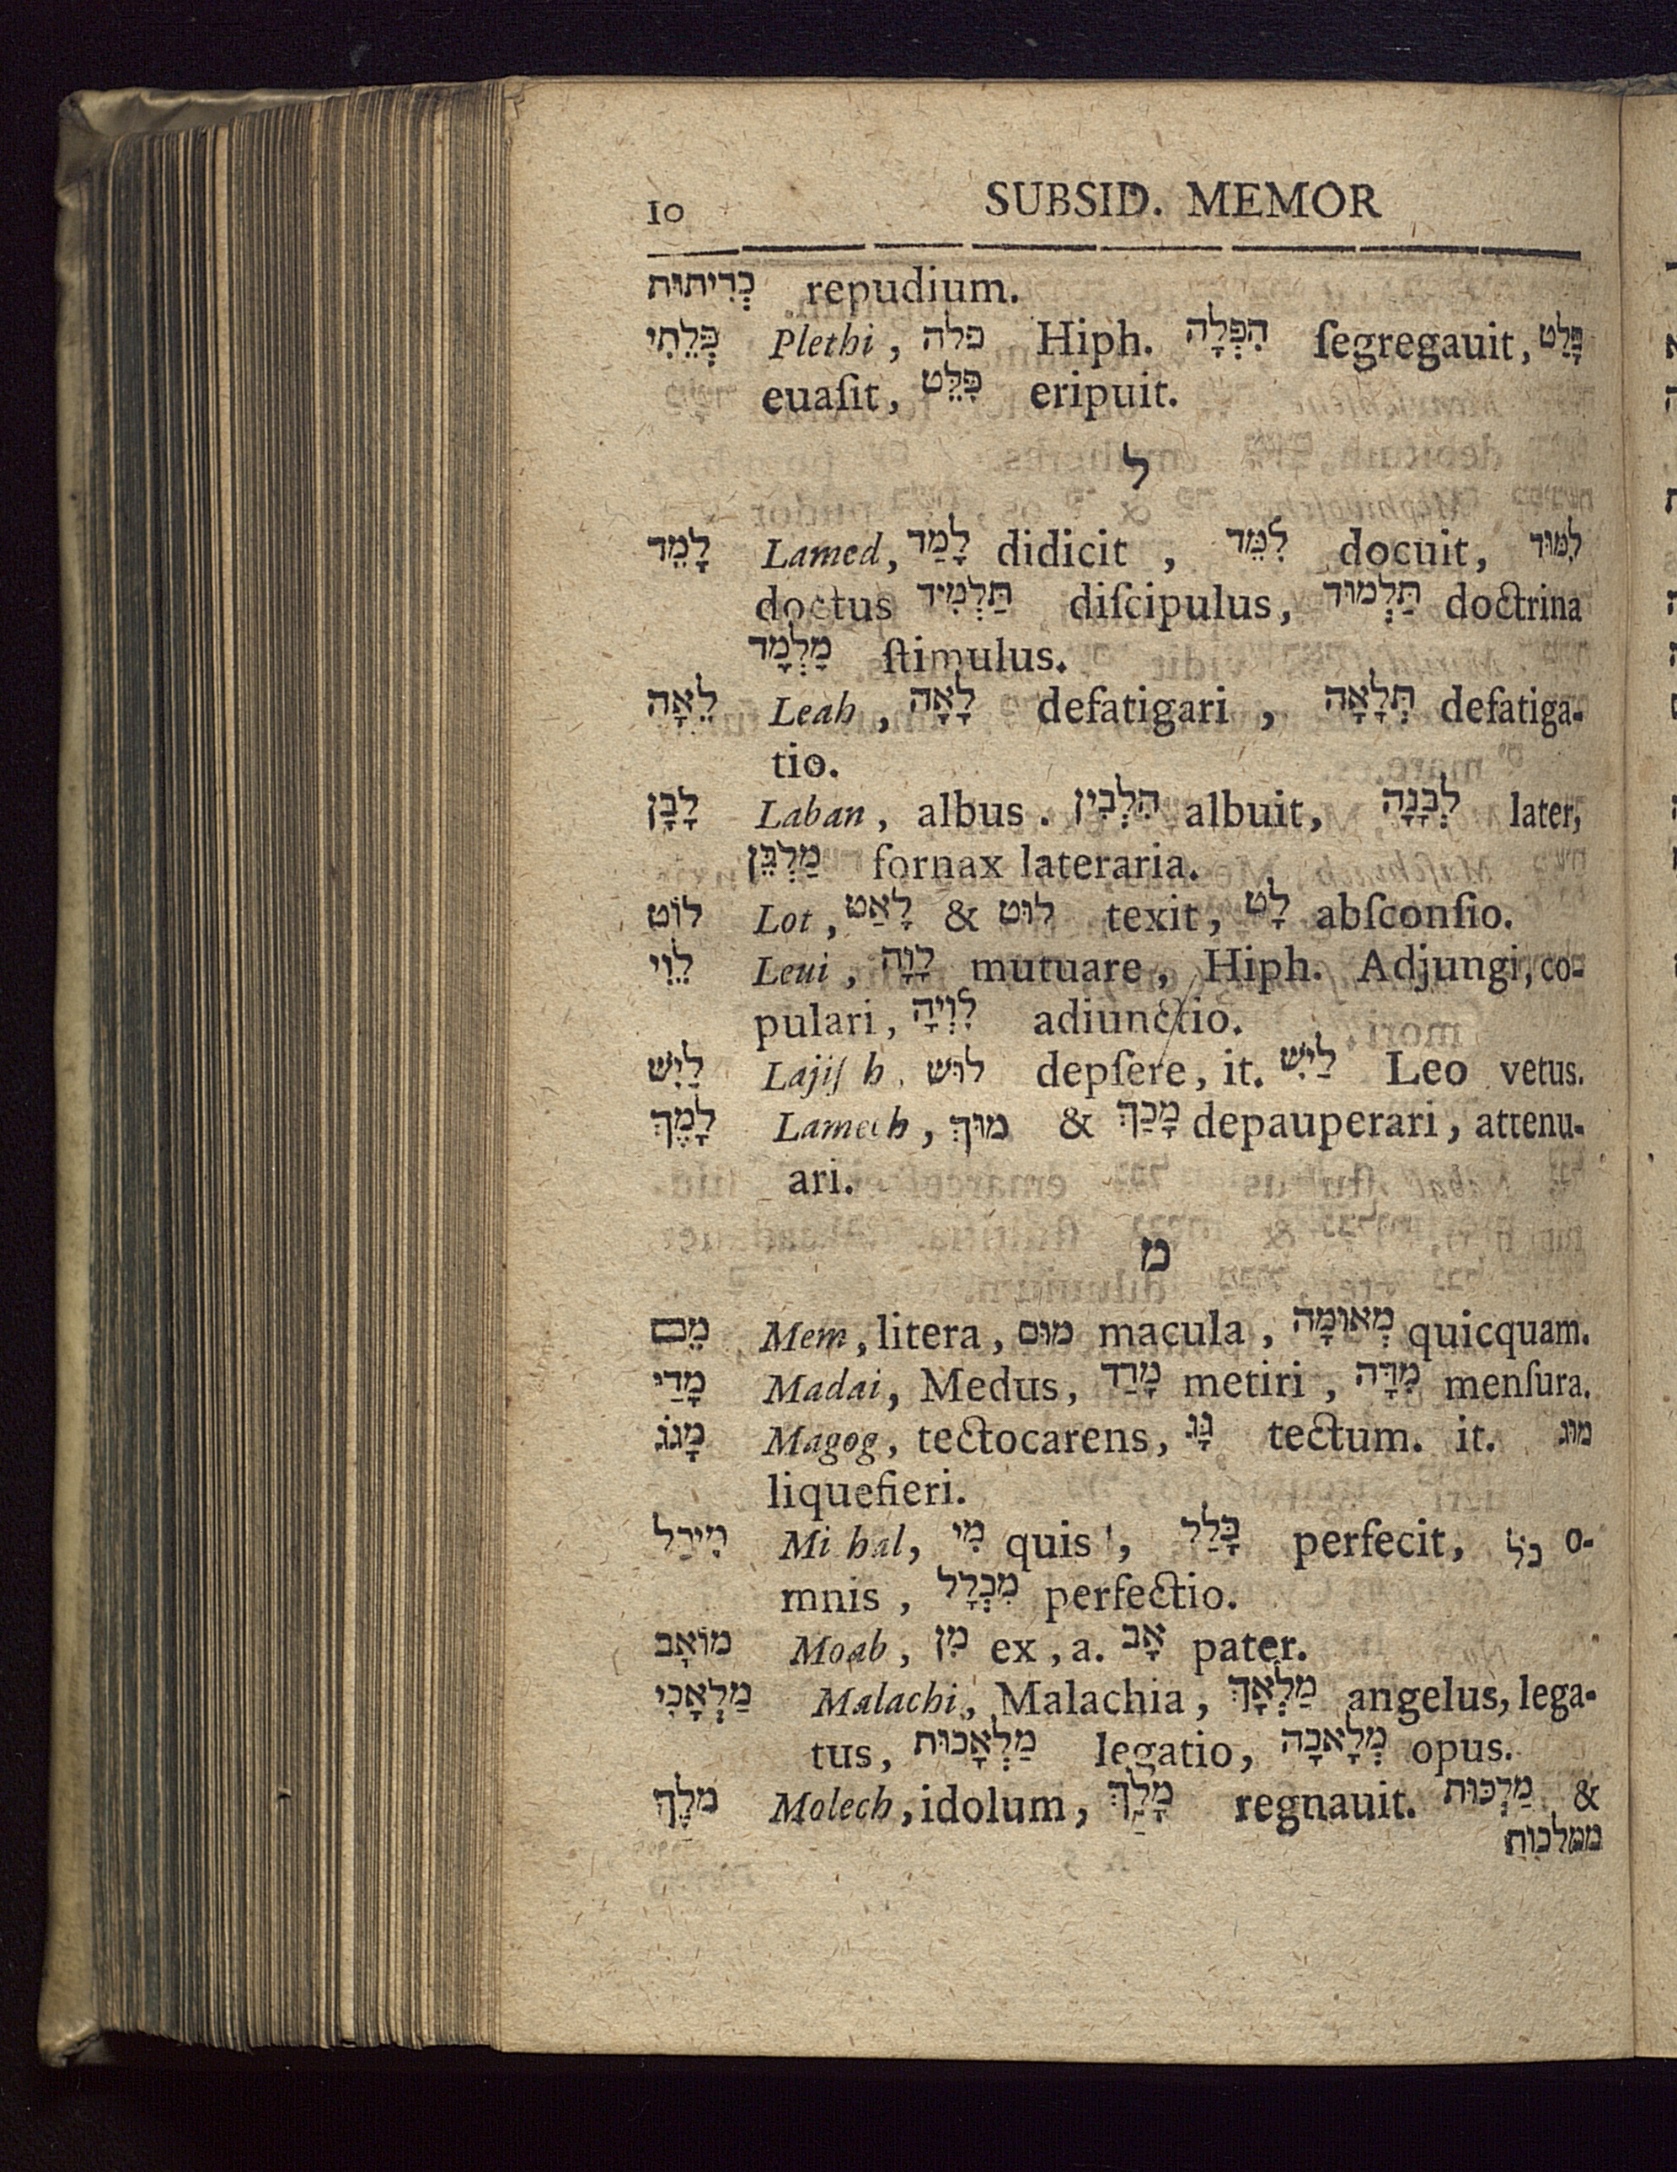 10 SUBSID. MEMOR
כְּרִיתוּת repudium.
פְּלֵתִי Plethi, פלה Hiph. הִפְלָה ſegregauit, פָּלַט
euaſit, פִּלֵּט eripuit.
ל
לָמֵד Lamed, לָמַד didicit, לִמֵּד docuit, לִמּוּד
doctus תַּלְמִיד diſcipulus, תַּלְמוּד doctrina
מַלְמָד ſtimulus.
לֵאָה Leah, לָאָה defatigari, תְּלָאָה defatiga-
tio.
לָבָן Laban, albus. הִלְבִּין albuit, לְבָנָה later,
מַלְבֵּן fornax lateraria.
לוֹט Lot, לָאַט & לוּט texit, לָט abſconſio.
לֵוִי Leui, לָוָה mutuare, Hiph. Adjungi, co-
pulari, לִוְיָה adiunctio.
לַיִשׁ Lajiſh, לוּשׁ depſere, it. לַיִשׁ Leo vetus.
לָמֶךְ Lamech, מוּךְ & מָכַךְ depauperari, attenu-
ari.
מ
מֵם Mem, litera, מוּם macula, מְאוּמָה quicquam.
מָדַי Madai, Medus, מָדַד metiri, מִדָּה menſura.
מָגוֹג Magog, tectocarens, גָּג tectum. it. מוּג
liquefieri.
מִיכַל Mi hal, מִי quis!, כָּלַל perfecit, כֹּל o-
mnis, מִכְלָל perfectio.
מוֹאָב Moab, מִן ex, a. אָב pater.
מַלְאָכִי Malachi, Malachia, מַלְאָךְ angelus, lega-
tus, מַלְאָכוּת legatio, מְלָאכָה opus.
מֹלֶךְ Molech, idolum, מָלַךְ regnauit. מַלְכּוּת &
ממלכות